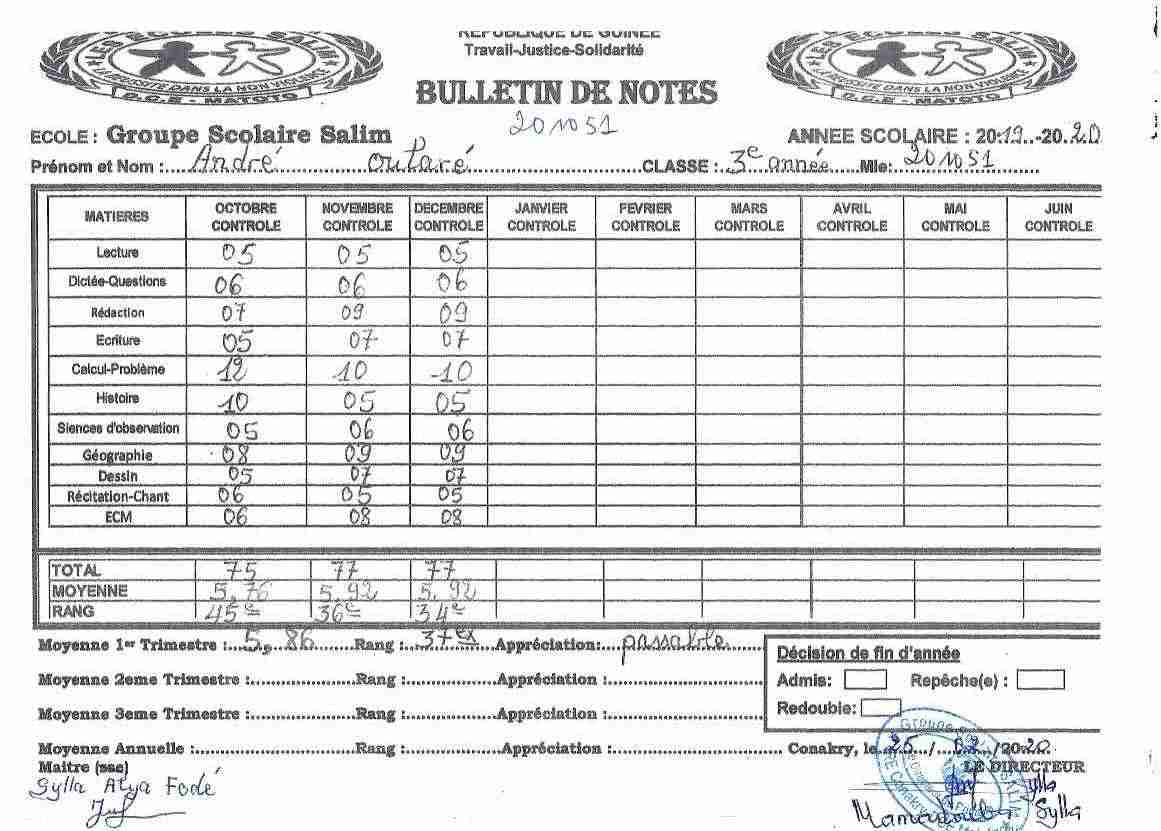 LES ECOLES SALIM
LA REUSSITE DANS LA NON VIOLENCE
D.C.E - MATOTO
REPUBLIQUE DE GUINEE
Travail-Justice-Solidarité
LES ECOLES SALIM
LA REUSSITE DANS LA NON VIOLENCE
D.C.E - MATOTO
BULLETIN DE NOTES
201051
ECOLE : Groupe Scolaire Salim ANNEE SCOLAIRE : 2019-2020
Prénom et Nom : André Oularé CLASSE : 3e année Mle: 201051
MATIERES OCTOBRE CONTROLE NOVEMBRE CONTROLE DECEMBRE CONTROLE JANVIER CONTROLE FEVRIER CONTROLE MARS CONTROLE AVRIL CONTROLE MAI CONTROLE JUIN CONTROLE
Lecture 05 05 05
Dictée-Questions 06 06 06
Rédaction 07 09 09
Ecriture 05 07 07
Calcul-Problème 12 10 10
Histoire 10 05 05
Siences d'observation 05 06 06
Géographie 08 09 09
Dessin 05 07 07
Récitation-Chant 06 05 05
ECM 06 08 08
TOTAL 75 77 77
MOYENNE 5,76 5,92 5,92
RANG 45e 36e 34e
Moyenne 1er Trimestre : 5,86 Rang : 37ex Appréciation: passable
Décision de fin d'année
Moyenne 2eme Trimestre : Rang : Appréciation :
Admis: Repêche(e) :
Moyenne 3eme Trimestre : Rang : Appréciation :
Redouble:
Moyenne Annuelle : Rang : Appréciation : Conakry, le 25/02/2020
Maitre (sse) LE DIRECTEUR
Sylla Alya Fodé
Sylla